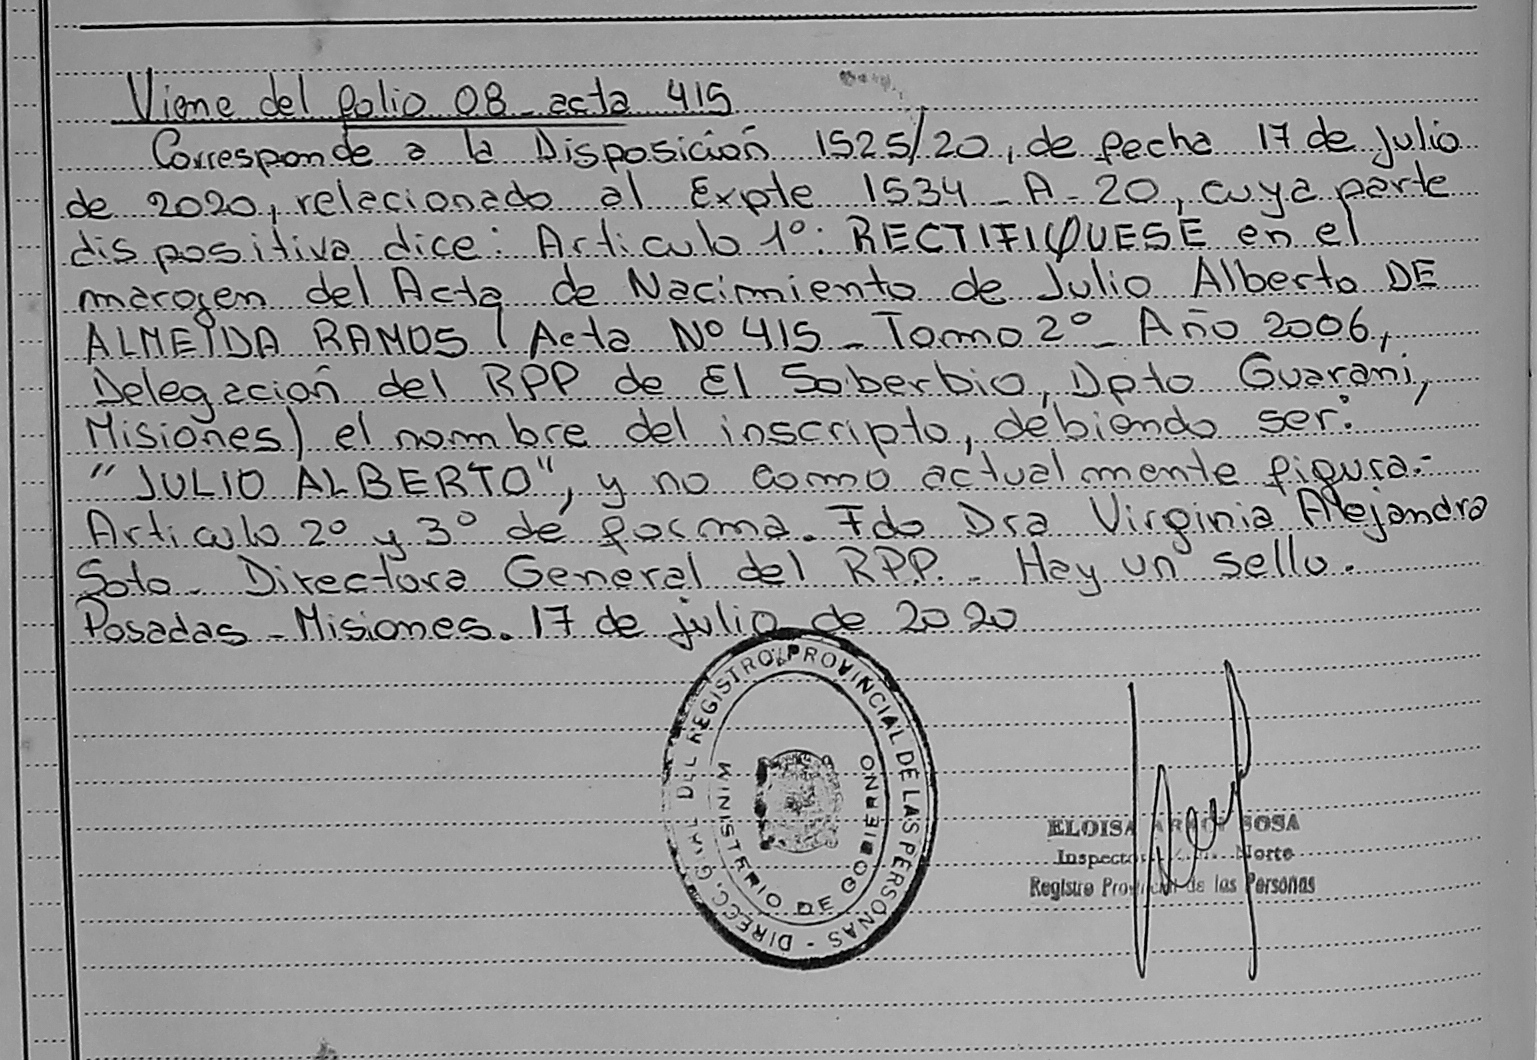 Viene del folio 08 - acta 415
Corresponde a la Disposición 1525/20, de fecha 17 de julio
de 2020, relacionado al Expte 1534 - A - 20, cuya parte
dispositiva dice: Articulo 1º: RECTIFIQUESE en el
margen del Acta de Nacimiento de Julio Alberto DE
ALMEIDA RAMOS (Acta Nº 415 - Tomo 2º - Año 2006,
Delegación del RPP de El Soberbio, Dpto Guarani,
Misiones) el nombre del inscripto, debiendo ser:
"JULIO ALBERTO", y no como actualmente figura.-
Articulo 2º y 3º de forma. Fdo Dra Virginia Alejandra
Soto - Directora General del RPP. - Hay un sello.
Posadas - Misiones. 17 de julio de 2020
DIRECC. GRAL DEL REGISTRO PROVINCIAL DE LAS PERSONAS -
MINISTERIO DE GOBIERNO
ELOISA SOSA
Norte
Registro Provincial de las Personas